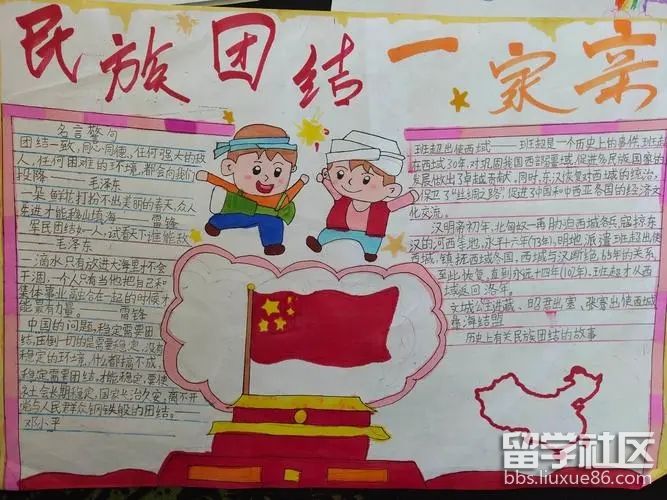 民族团结一家亲
名言警句
团结一致,同心同德,任何强大的敌
人,任何困难的环境,都会向我们
投降——毛泽东
一朵鲜花打扮不出美丽的春天,众人
先进才能移山填海——雷锋
军民团结如一人,试看天下谁能敌
——毛泽东
一滴水只有放进大海里才不会
干涸,一个人只有当他把自己和
集体事业融合在一起的时候才
能最有力量。——雷锋
中国的问题,稳定需要团
结,压倒一切的是需要稳定,没有
稳定的环境,什么都搞不成
稳定需要团结,才能稳定,要使
社会长期稳定,国家长治久安,离不开
党与人民群众钢铁般的团结。
邓小平
班超出使西域——班超是一个历史上的事件,班超
在西域30年,对巩固我国西部疆域,促进各民族国家的
发展做出了卓越贡献,同时,东汉恢复对西域的统治,
保卫了"丝绸之路",促进了中国和中西亚各国的经济文
化交流。
汉明帝初年,北匈奴一再胁迫西域各兵,寇掠东
汉的河西等地,永平十六年(73年),明地派遣班超出使
西域,镇抚西域各国,西域与汉断绝65年的关系,
至此恢复,直到永远十四年(102年),班超才从西
域返回洛年。
文成公主进藏、昭君出塞、张骞出使西域
珠海结盟
历史上有关民族团结的故事
留学社区
bbs.liuxue86.com